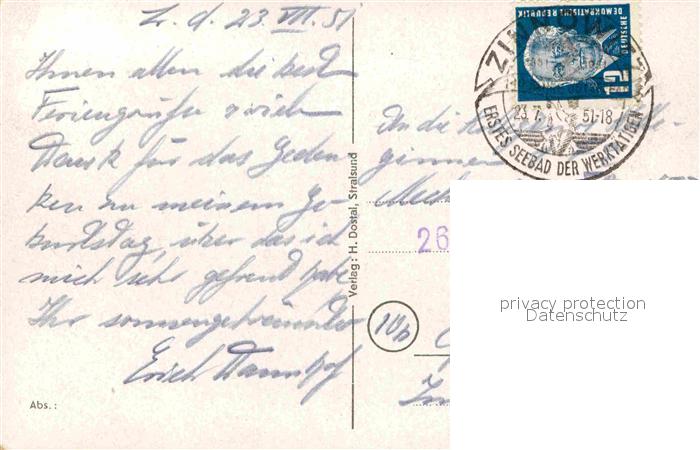 Z. d. 23. VII. 51
Ihnen allen die best
Feriengrüße u viel
Dank für das Geden
ken zu meinem Ge
burtstag, über das ich
mich sehr gefreut habe
Ihr sonnengebräunter
Erich
Abs.:
Verlag: H. Dostal, Stralsund
DEUTSCHE
DEMOKRATISCHE REPUBLIK
12
23.7. 51-18
ERSTES SEEBAD DER WERKTÄTIGEN
An die
ginnen
26
10b
privacy protection
Datenschutz